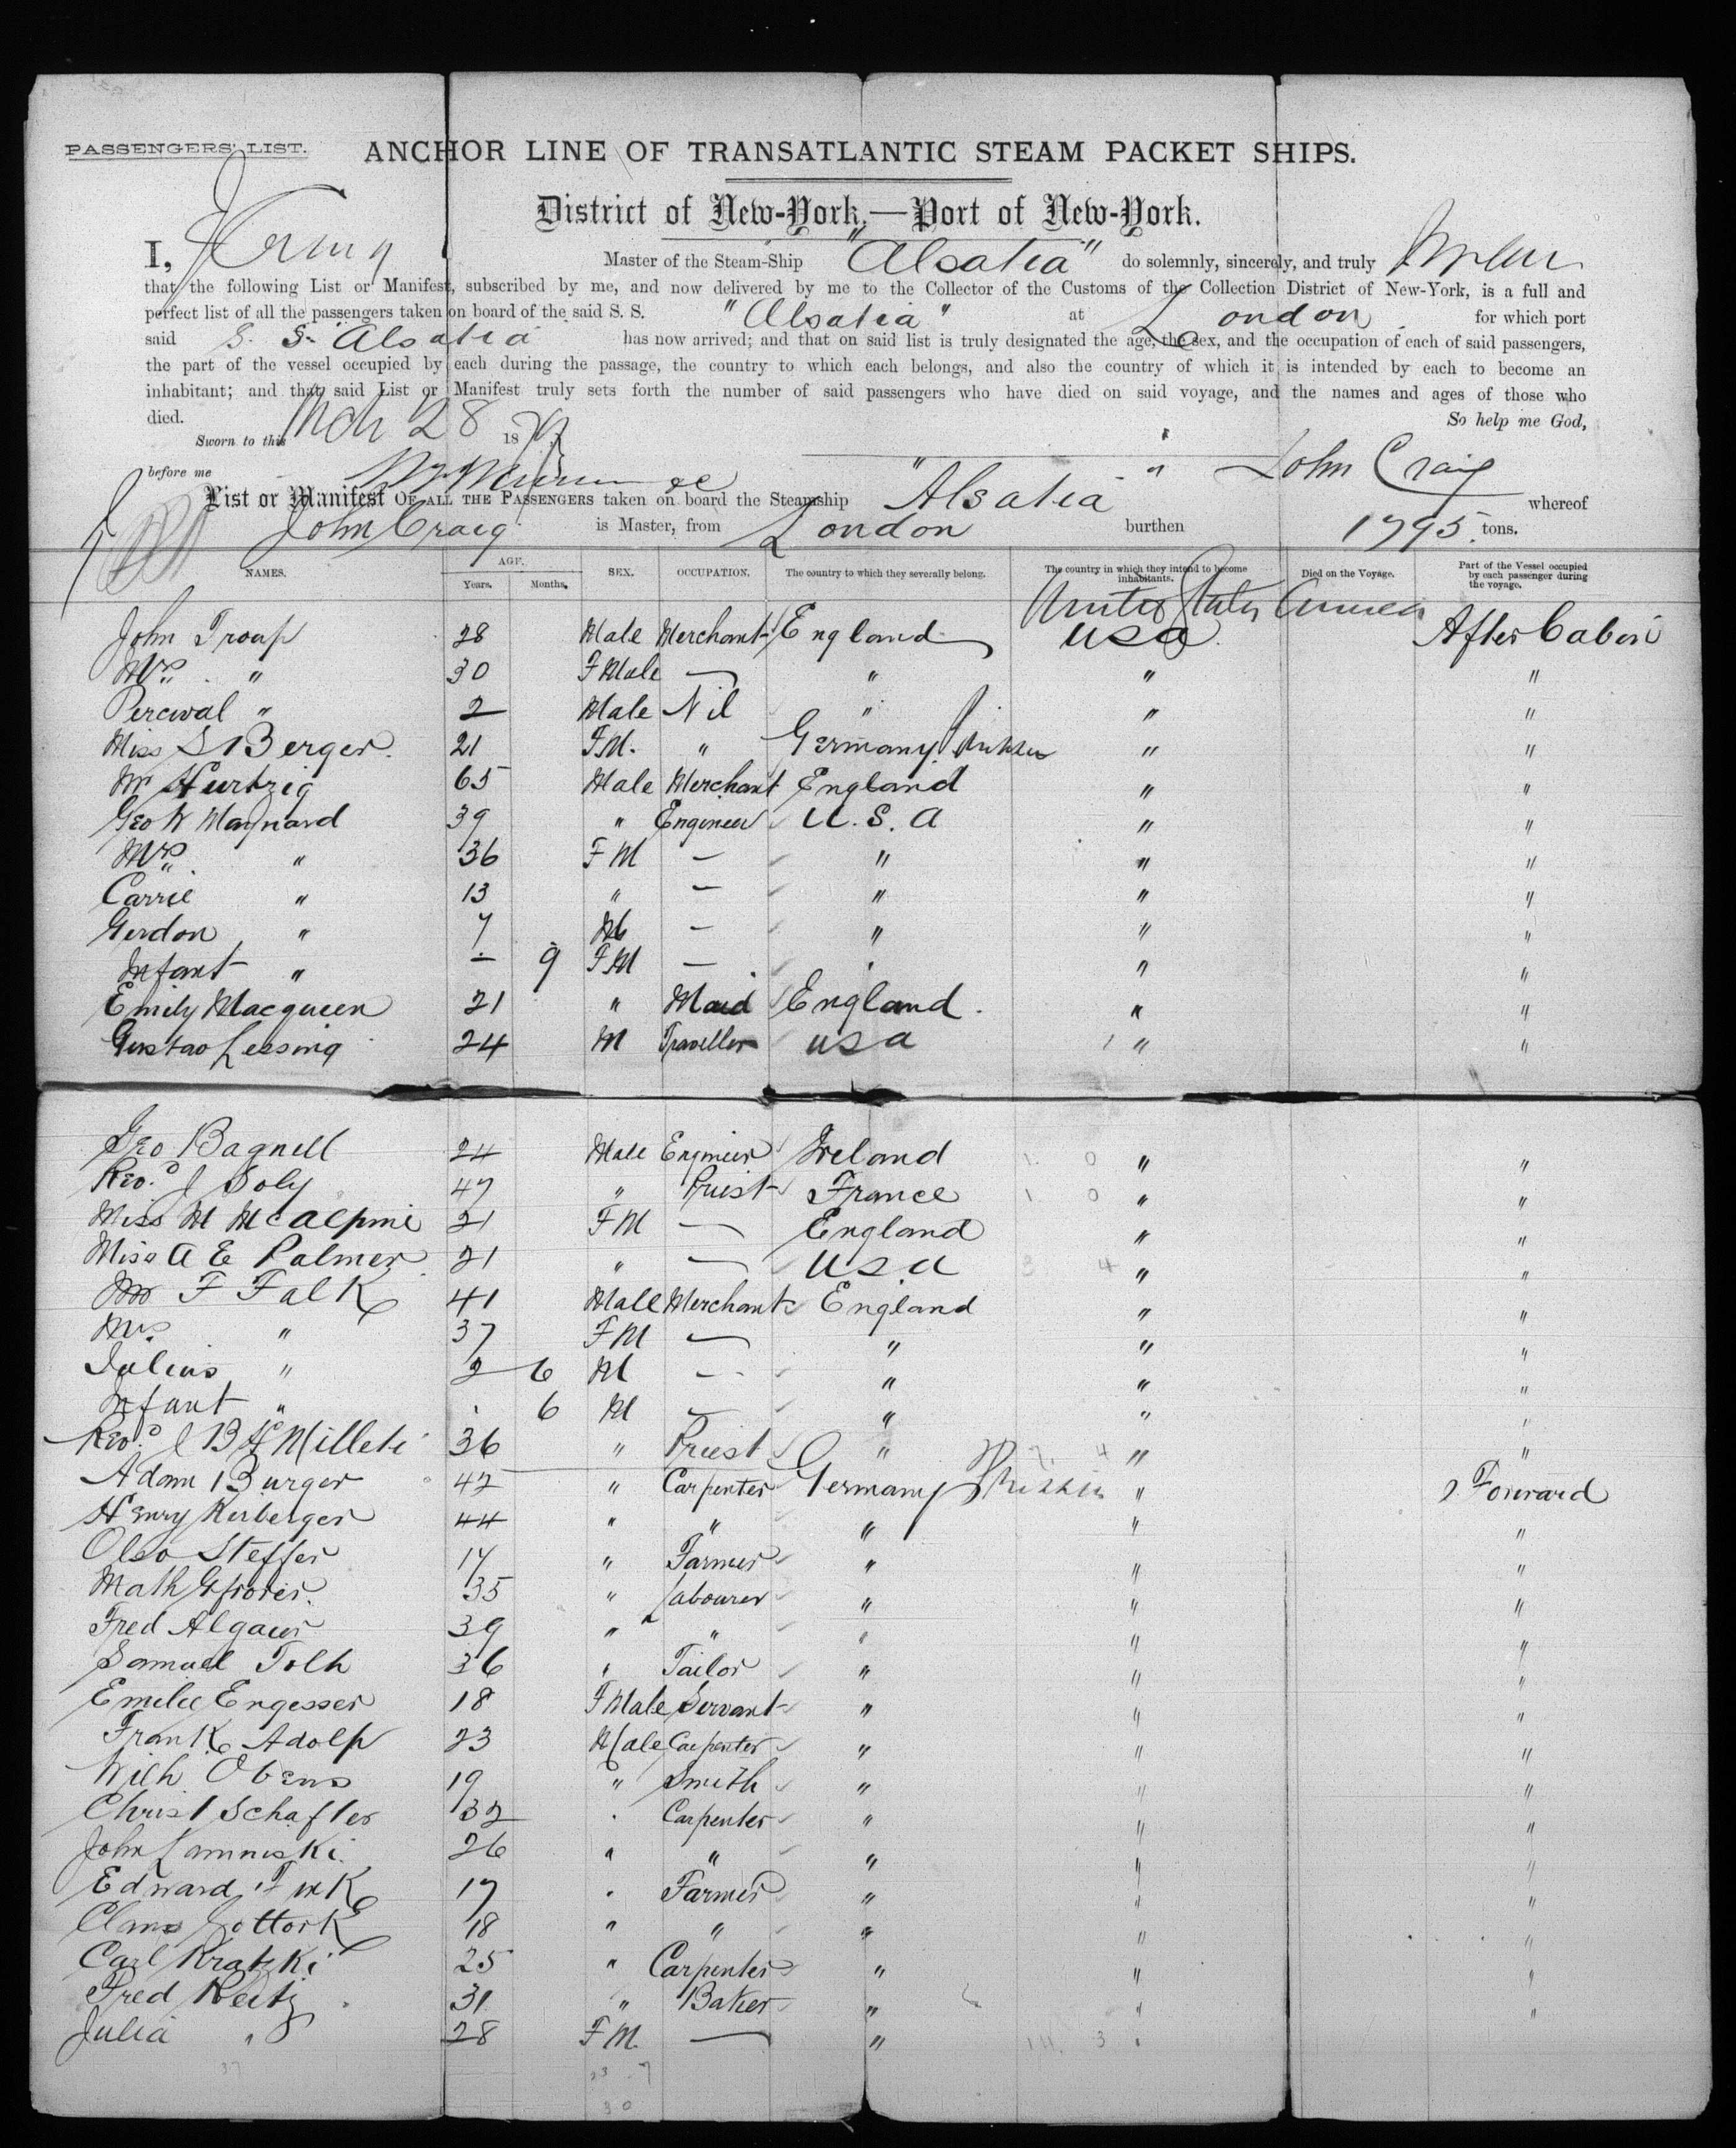 PASSENGERS' LIST. ANCHOR LINE OF TRANSATLANTIC STEAM PACKET SHIPS.
District of New-York,—Port of New-York.
I, J Craig Master of the Steam-Ship "Alsatia" do solemnly, sincerely, and truly
that the following List or Manifest, subscribed by me, and now delivered by me to the Collector of the Customs of the Collection District of New-York, is a full and
perfect list of all the passengers taken on board of the said S. S. "Alsatia" at London for which port
said S. S. Alsatia has now arrived; and that on said list is truly designated the age, the sex, and the occupation of each of said passengers,
the part of the vessel occupied by each during the passage, the country to which each belongs, and also the country of which it is intended by each to become an
inhabitant; and that said List or Manifest truly sets forth the number of said passengers who have died on said voyage, and the names and ages of those who
died. So help me God,
Sworn to this Mch 28 1879
before me " " John Craig
List or Manifest OF ALL THE PASSENGERS taken on board the Steamship Alsatia whereof
John Craig is Master, from London burthen 1795 tons.
NAMES. AGE. Years. Months. SEX. OCCUPATION. The country to which they severally belong. The country in which they intend to become inhabitants. Died on the Voyage. Part of the Vessel occupied by each passenger during the voyage.
United States America
John Troup 28 Male Merchant England USA After Cabin
Mrs " 30 FMale — " " "
Percival " 2 Male Nil " " "
Miss S Berger 21 FM. " Germany " "
Mr Hurtzig 65 Male Merchant England " "
Geo W Maynard 39 " Engineer U.S.A " "
Mrs " 36 FM — " " "
Carrie " 13 " — " " "
Gerdon " 7 M — " " "
Infant " - 9 FM — " " "
Emily Macqueen 21 " Maid England " "
Gustav Lessing 24 M Traveller USA " "
Geo Bagnell 24 Male Engineer Ireland 1 0 " "
Revd J Soly 47 " Priest France 1 0 " "
Miss M McAlpine 21 FM — England " "
Miss A E Palmer 21 " — USA 3 4 " "
Mr F Falk 41 Male Merchant England " "
Mrs " 37 FM — " " "
Julius " 2 6 M — " " "
Infant " . 6 M — " " "
Revd J B Millete 36 " Priest " " "
Adam Burger 42 " Carpenter Germany " Forward
Henry Kerberger 44 " " " " "
Steffer 17 " Farmer " " "
Math 35 " Labourer " " "
Fred Algauer 39 " " " " "
Samuel Tolh 36 " Tailor " " "
Emilie Engesser 18 FMale Servant " " "
Frank Adolp 23 Male Carpenter " " "
Wilh Obens 19 " Smith " " "
Christ Schafter 32 " Carpenter " " "
John Laminski 26 " " " " "
Edward Fink 17 " Farmer " " "
Claus Gottork 18 " " " " "
Carl Kratzki 25 " Carpenter " " "
Fred Reitz 31 " Baker " " "
Julia " 28 FM. — " "